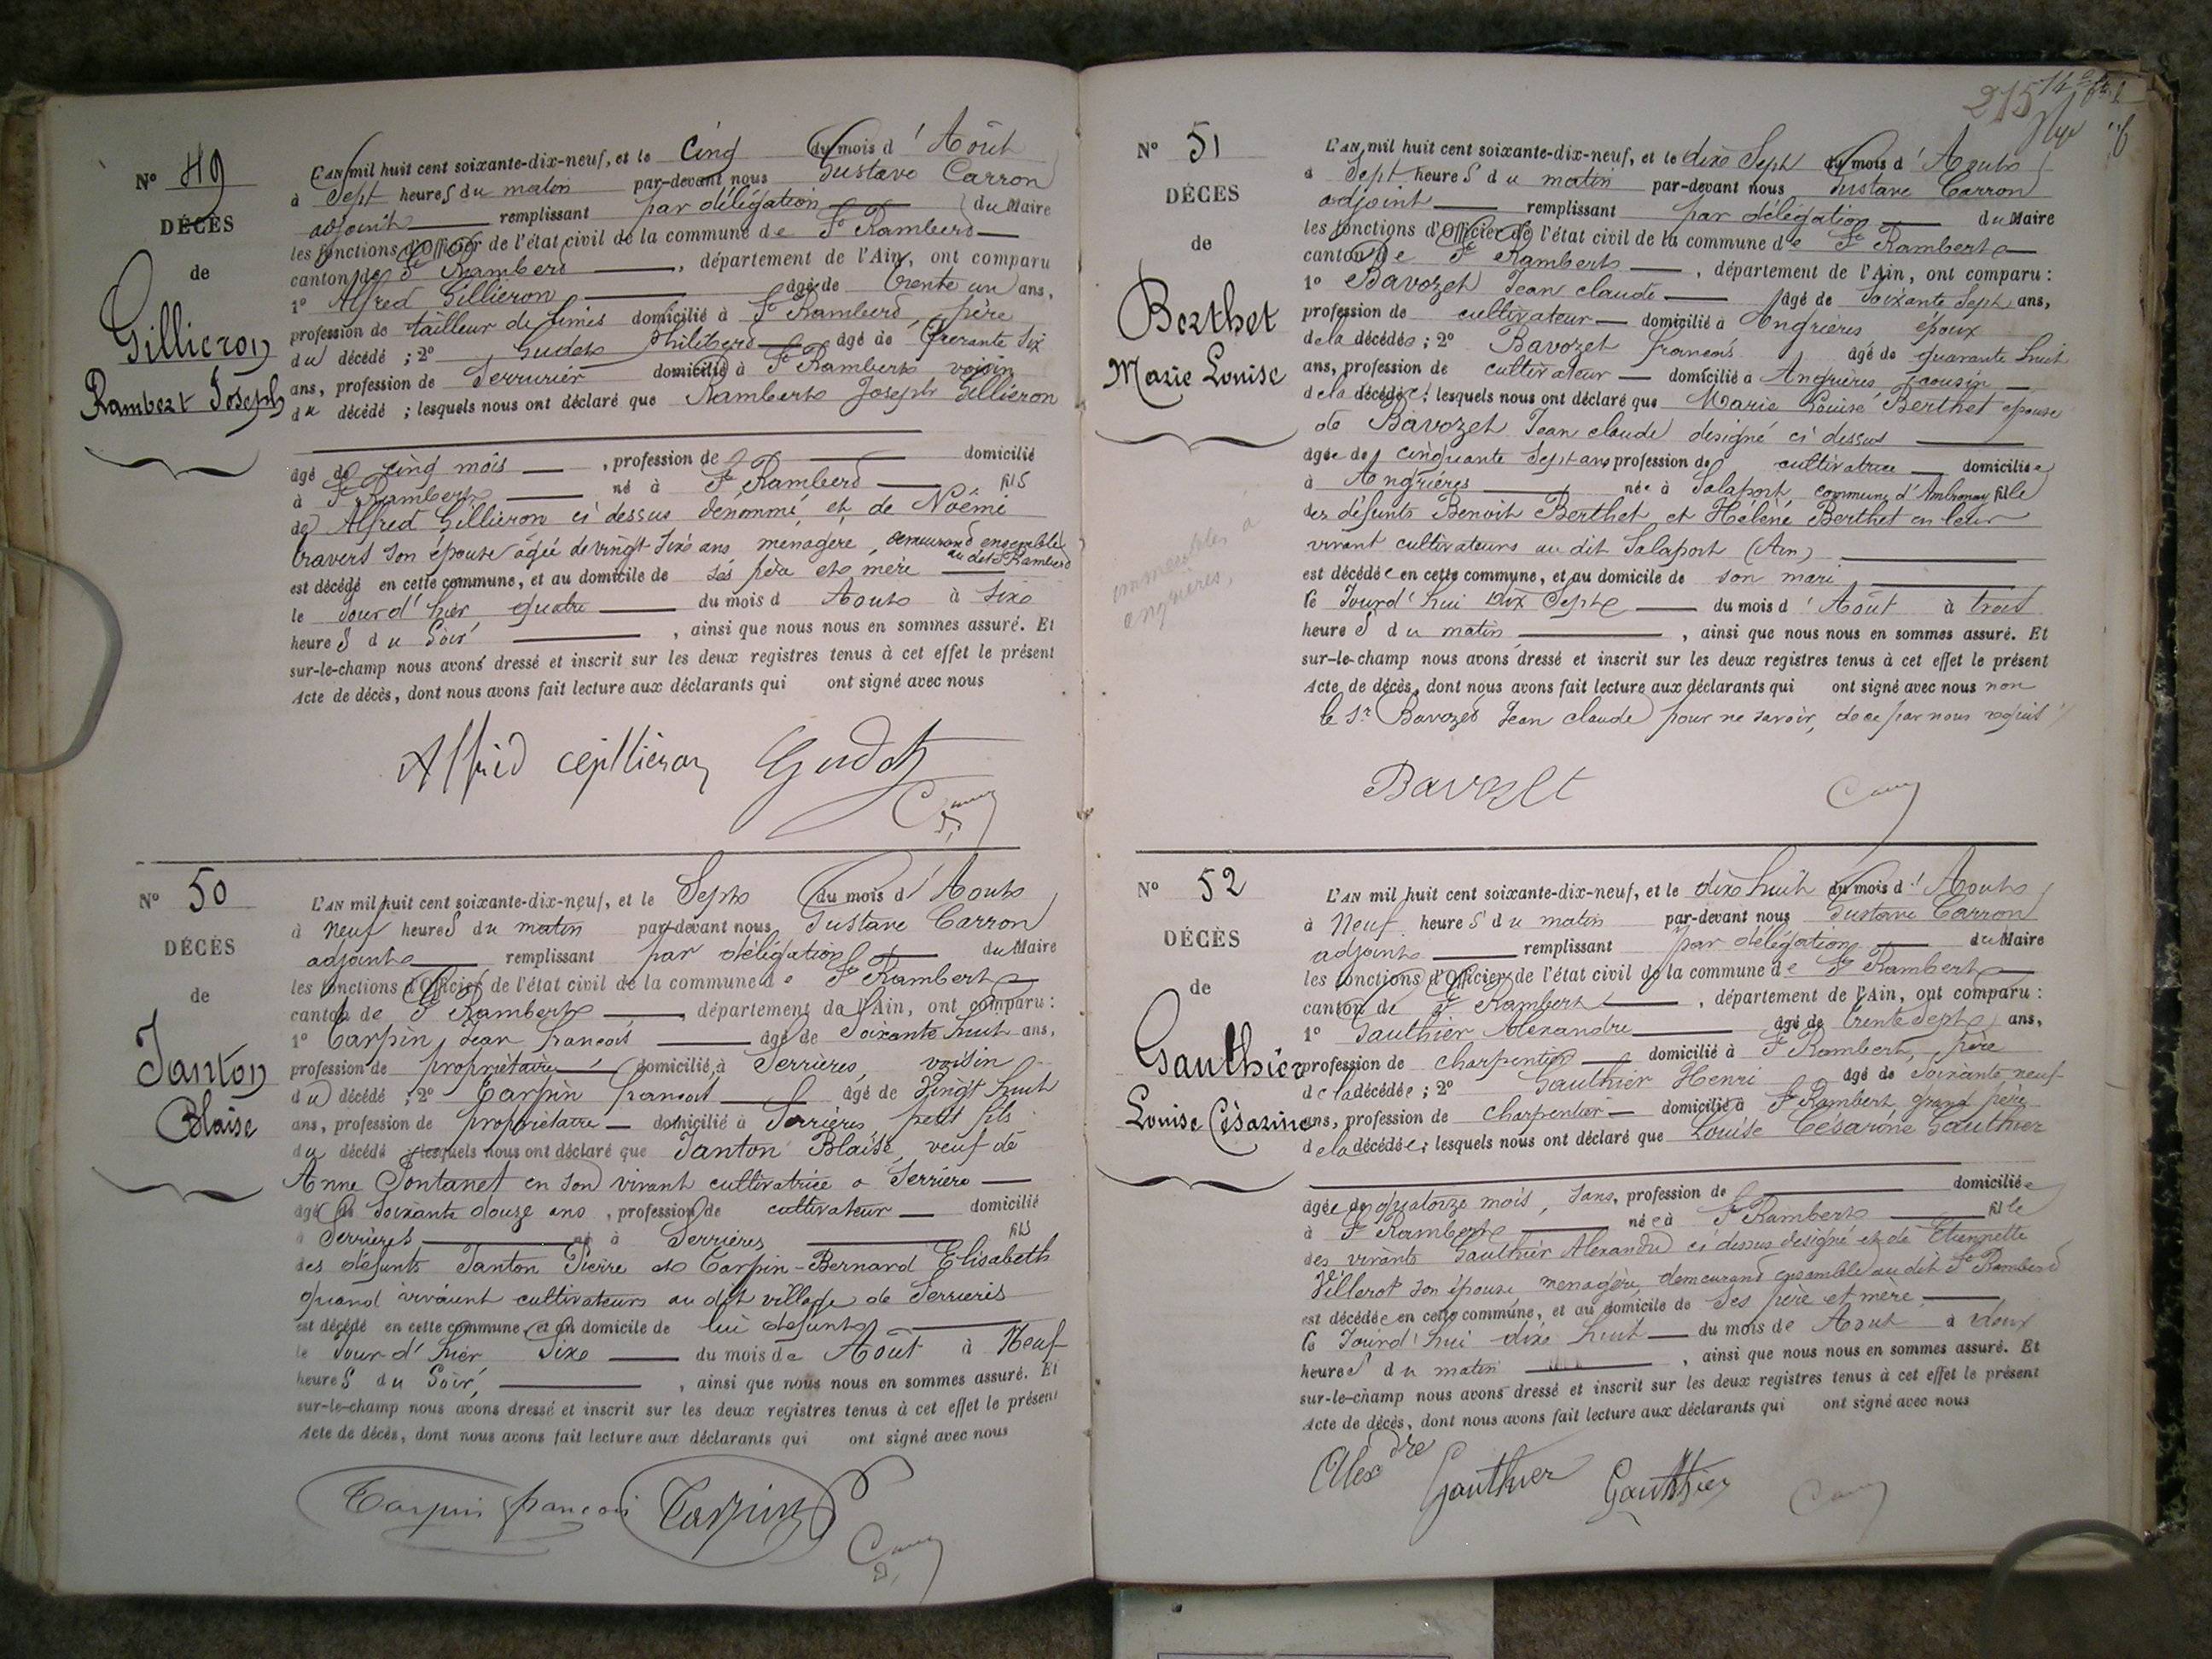 N° 49
DÉCÈS
de
Gillieron
Rambert Joseph
L'AN mil huit cent soixante-dix-neuf, et le cinq du mois d'Août
à Sept heures du matin par-devant nous Gustave Carron
adjoint remplissant par délégation du Maire
les fonctions d'Officier de l'état civil de la commune de St Rambert
canton de St Rambert, département de l'Ain, ont comparu
1° Alfred Gillieron âgé de trente un ans,
profession de tailleur de limes domicilié à St Rambert, père
du décédé ; 2° Gudet Philibert âgé de quarante six
ans, profession de Serrurier domicilié à St Rambert voisin
du décédé ; lesquels nous ont déclaré que Rambert Joseph Gillieron
âgé de cinq mois, profession de domicilié
à St Rambert né à St Rambert fils
de Alfred Gillieron ci dessus dénommé, et de Noémi
travers son épouse âgée de vingt six ans ménagère, demeurand ensemble
au dit St Rambert
est décédé en cette commune, et au domicile de sés père et mère
le Jour d'hier quatre du mois d Aout à Six
heures du Soir, ainsi que nous nous en sommes assuré. Et
sur-le-champ nous avons dressé et inscrit sur les deux registres tenus à cet effet le présent
Acte de décès, dont nous avons fait lecture aux déclarants qui ont signé avec nous
Gudet
N° 50
DÉCÈS
de
Janton
Blaise
L'AN mil huit cent soixante-dix-neuf, et le Sept du mois d'Aout
à neuf heures du matin par-devant nous Gustave Carron
adjoint remplissant par délégation du Maire
les fonctions d'Officier de l'état civil de la commune de St Rambert
canton de St Rambert, département de l'Ain, ont comparu :
1° Carpin Jean François âgé de Soixante huit ans,
profession de propriétaire domicilié à Serrières, voisin
du décédé ; 2° Carpin François âgé de Vingt huit
ans, profession de propriétaire domicilié à Serrières, petit fils
du décédé lesquels nous ont déclaré que Janton Blaise, veuf de
Anne Pontanet en son vivant cultivatrice a Serrière
âgé de Soixante douze ans, profession de cultivateur domicilié
à Serrières né à Serrières fils
des défunts Janton Pierre et Carpin-Bernard Elisabeth
quand vivaient cultivateurs au dit village de Serrieres
est décédé en cette commune et au domicile de lui defunt
le Jour d'hier Six du mois de Août à Neuf
heures du Soir, ainsi que nous nous en sommes assuré. Et
sur-le-champ nous avons dressé et inscrit sur les deux registres tenus à cet effet le présent
Acte de décès, dont nous avons fait lecture aux déclarants qui ont signé avec nous
Carpin françois Carpin
215
N° 51
DÉCÈS
de
Berthet
Marie Louise
immeubles a
angrieres,
L'AN mil huit cent soixante-dix-neuf, et le dix Sept du mois d'Aout
à Sept heures du matin par-devant nous Gustave Carron
adjoint remplissant par délégation du Maire
les fonctions d'Officier de l'état civil de la commune de St Rambert
canton de St Rambert, département de l'Ain, ont comparu :
1° Bavozet Jean claude âgé de Soixante Sept ans,
profession de cultivateur domicilié à Angrières époux
de la décédée ; 2° Bavozet françois âgé de quarante huit
ans, profession de cultivateur domicilié à Angrières cousin
de la décédée ; lesquels nous ont déclaré que Marie Louise Berthet épouse
de Bavozet Jean claude designé ci dessus
âgée de cinquante Sept ans profession de cultivatrice domiciliée
à Angrières née à Salaport commune d'Ambronay fille
des défunts Benoit Berthet et Hélène Berthet en leur
vivant cultivateurs au dit Salaport (Ain)
est décédée en cette commune, et au domicile de son mari
le Jourd'hui Dix Sept du mois d'Août à trois
heures du matin, ainsi que nous nous en sommes assuré. Et
sur-le-champ nous avons dressé et inscrit sur les deux registres tenus à cet effet le présent
Acte de décès, dont nous avons fait lecture aux déclarants qui ont signé avec nous non
le Sr Bavozet Jean claude pour ne savoir, de ce par nous requis
Bavozet
N° 52
DÉCÈS
de
Gauthier
Louise Césarine
L'AN mil huit cent soixante-dix-neuf, et le dix huit du mois d'Aout
à Neuf heures du matin par-devant nous Gustave Carron
adjoint remplissant par délégation du Maire
les fonctions d'Officier de l'état civil de la commune de St Rambert
canton de St Rambert, département de l'Ain, ont comparu :
1° Gauthier Alexandre âgé de trente Sept ans,
profession de charpentier domicilié à St Rambert, père
de la décédée ; 2° Gauthier Henri âgé de soixante neuf
ans, profession de charpentier domicilié à St Rambert grand père
de la décédée ; lesquels nous ont déclaré que Louise Césarine Gauthier
âgée de quatorze mois, sans, profession de domiciliée
à St Rambert née à St Rambert fille
des vivants Gauthier Alexandre ci dessus designé et de Etiennette
Villerot son épouse, menagère, demeurand ensemble au dit St Rambert
est décédée en cette commune, et au domicile de Ses père et mère
le Jourd'hui dix huit du mois de Aout à deux
heures du matin, ainsi que nous nous en sommes assuré. Et
sur-le-champ nous avons dressé et inscrit sur les deux registres tenus à cet effet le présent
Acte de décès, dont nous avons fait lecture aux déclarants qui ont signé avec nous
Alexdre Gauthier Gauthier